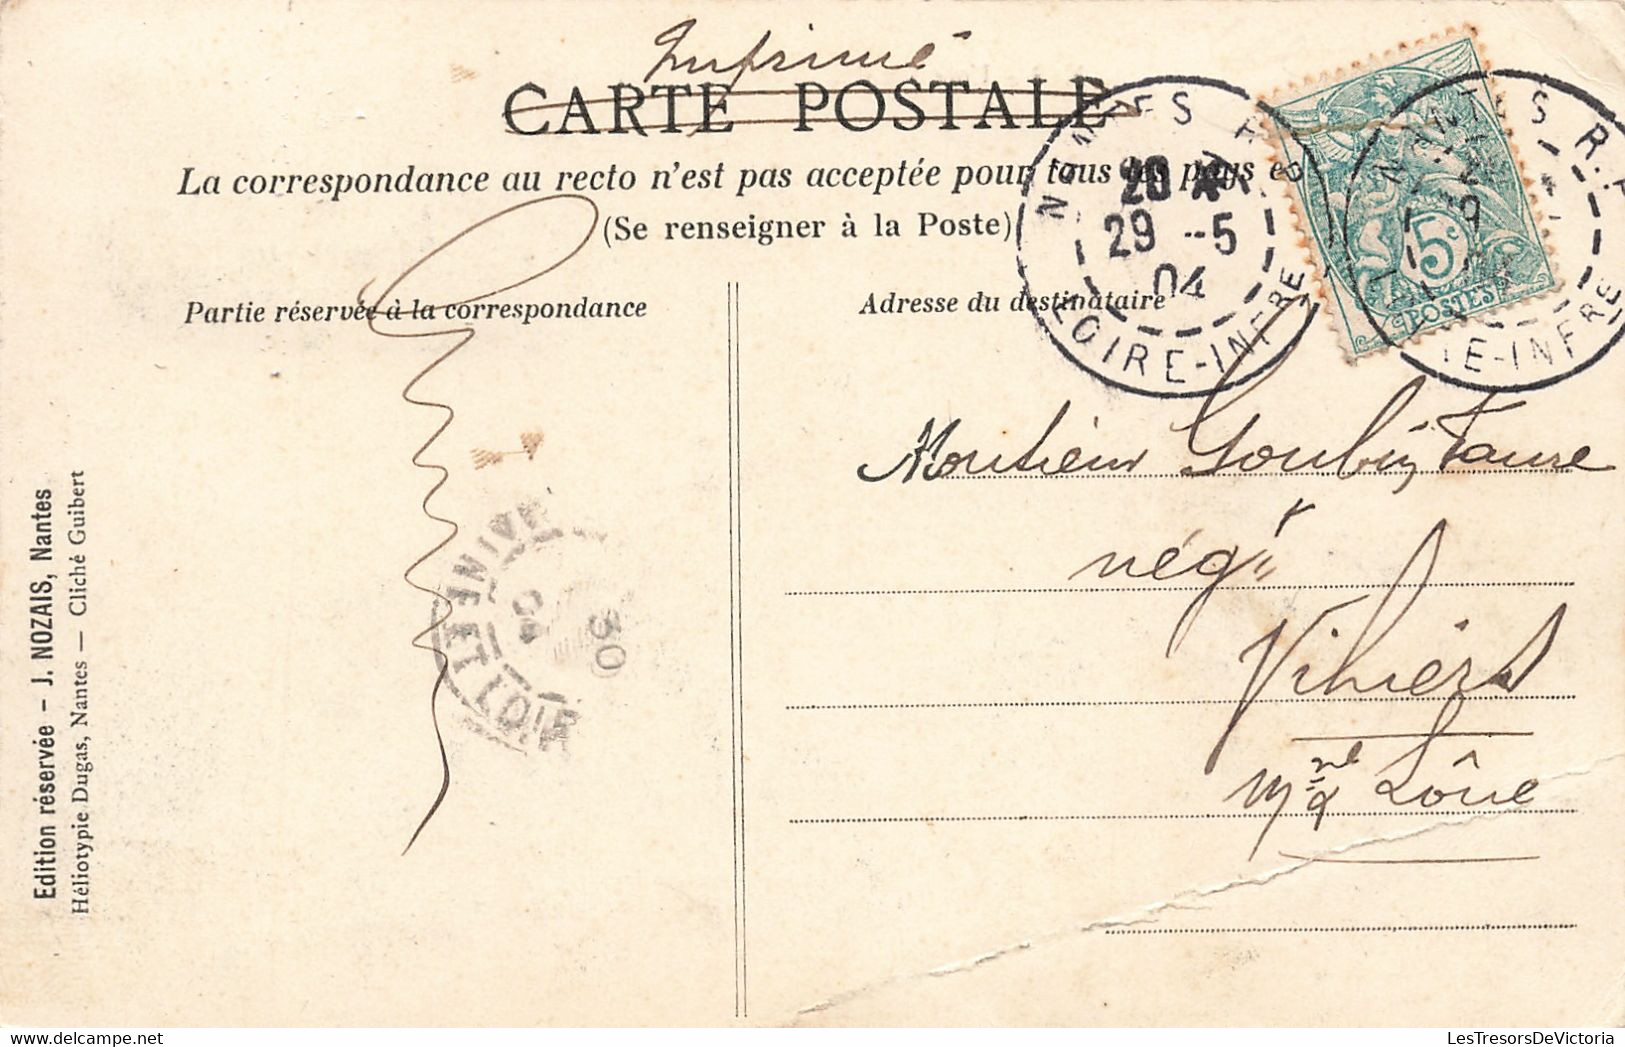 Imprimé
CARTE POSTALE
La correspondance au recto n'est pas acceptée pour tous les pays
(Se renseigner à la Poste)
Partie réservée à la correspondance
Adresse du destinataire
NANTES R.P.
29 -5
04
LOIRE-INFRE
NANTES R.P.
IE-INFRE
5c
POSTES
Monsieur Goubin Faure
négt
Vihiers
Mne & Loire
30
04
MAINE ET LOIR
Edition réservée - J. NOZAIS, Nantes
Héliotypie Dugas, Nantes — Cliché Guibert
LesTresorsDeVictoria